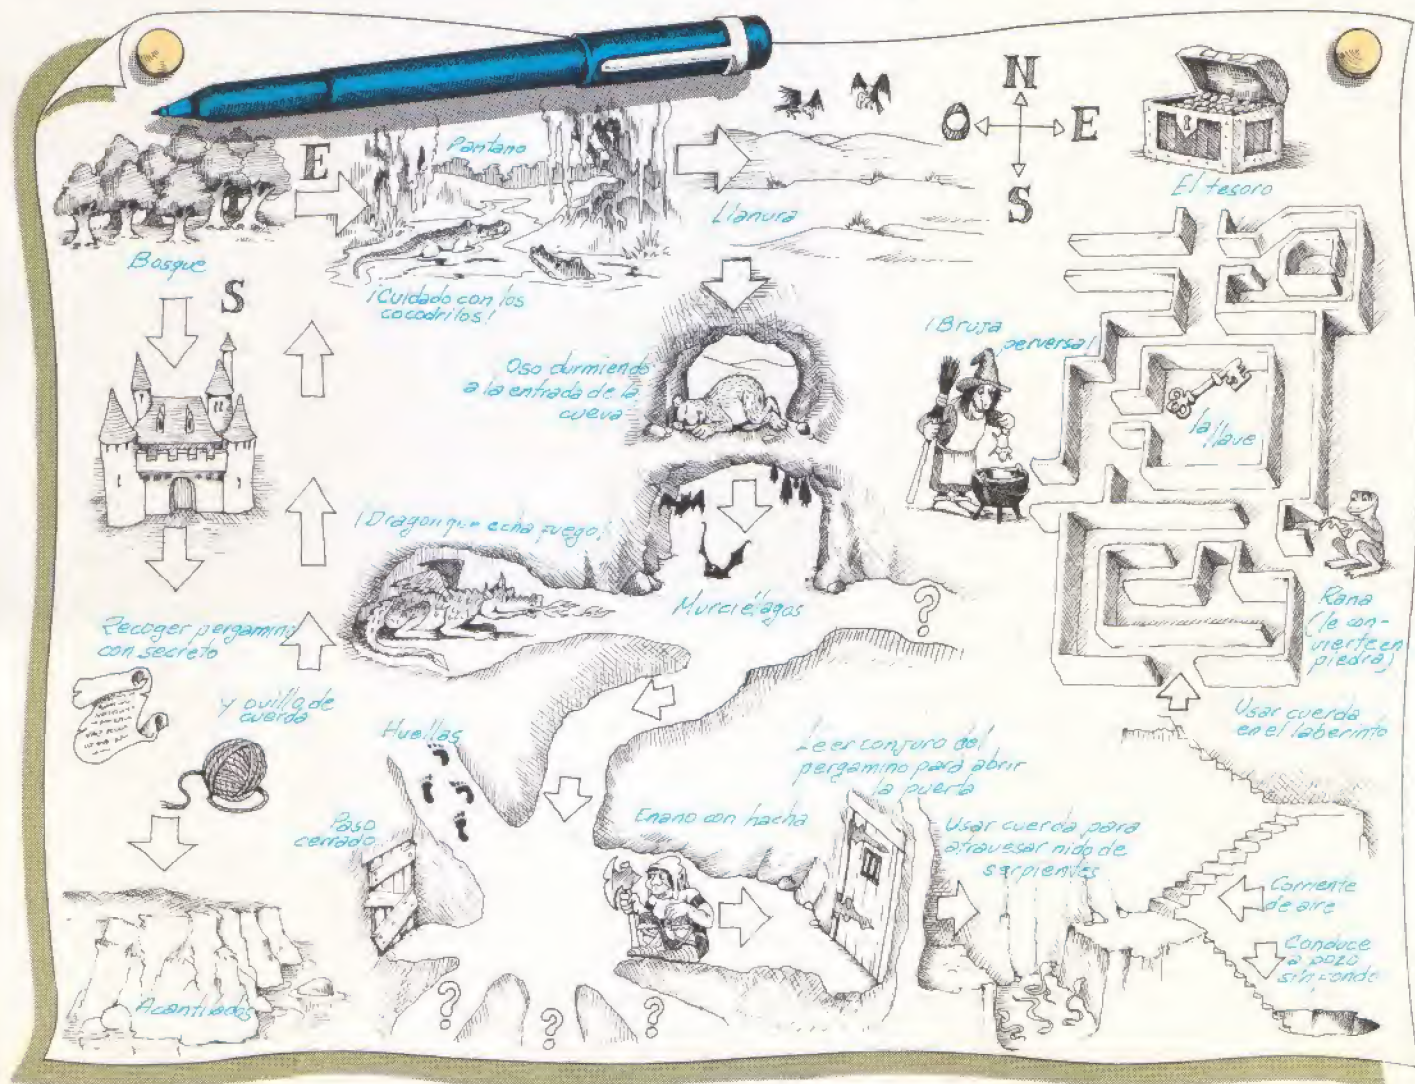 N
O
E
S
Pantano
E
El tesoro
Llanura
Bosque
S
¡Cuidado con los
cocodrilos!
¡Bruja
perversa!
Oso durmiendo
a la entrada de la
cueva
la llave
¡Dragon que echa fuego!
Murciélagos
?
Rana
(le con-
vierte en
piedra)
Recoger pergamino
con secreto
y ovillo de
cuerda
Huellas
Usar cuerda
en el laberinto
Leer conjuro del
pergamino para abrir
la puerta
Paso
cerrado
Enano con hacha
Usar cuerda para
atravesar nido de
serpientes
Corriente
de aire
Conduce
a pozo
sin
Acantilados
?
?
?